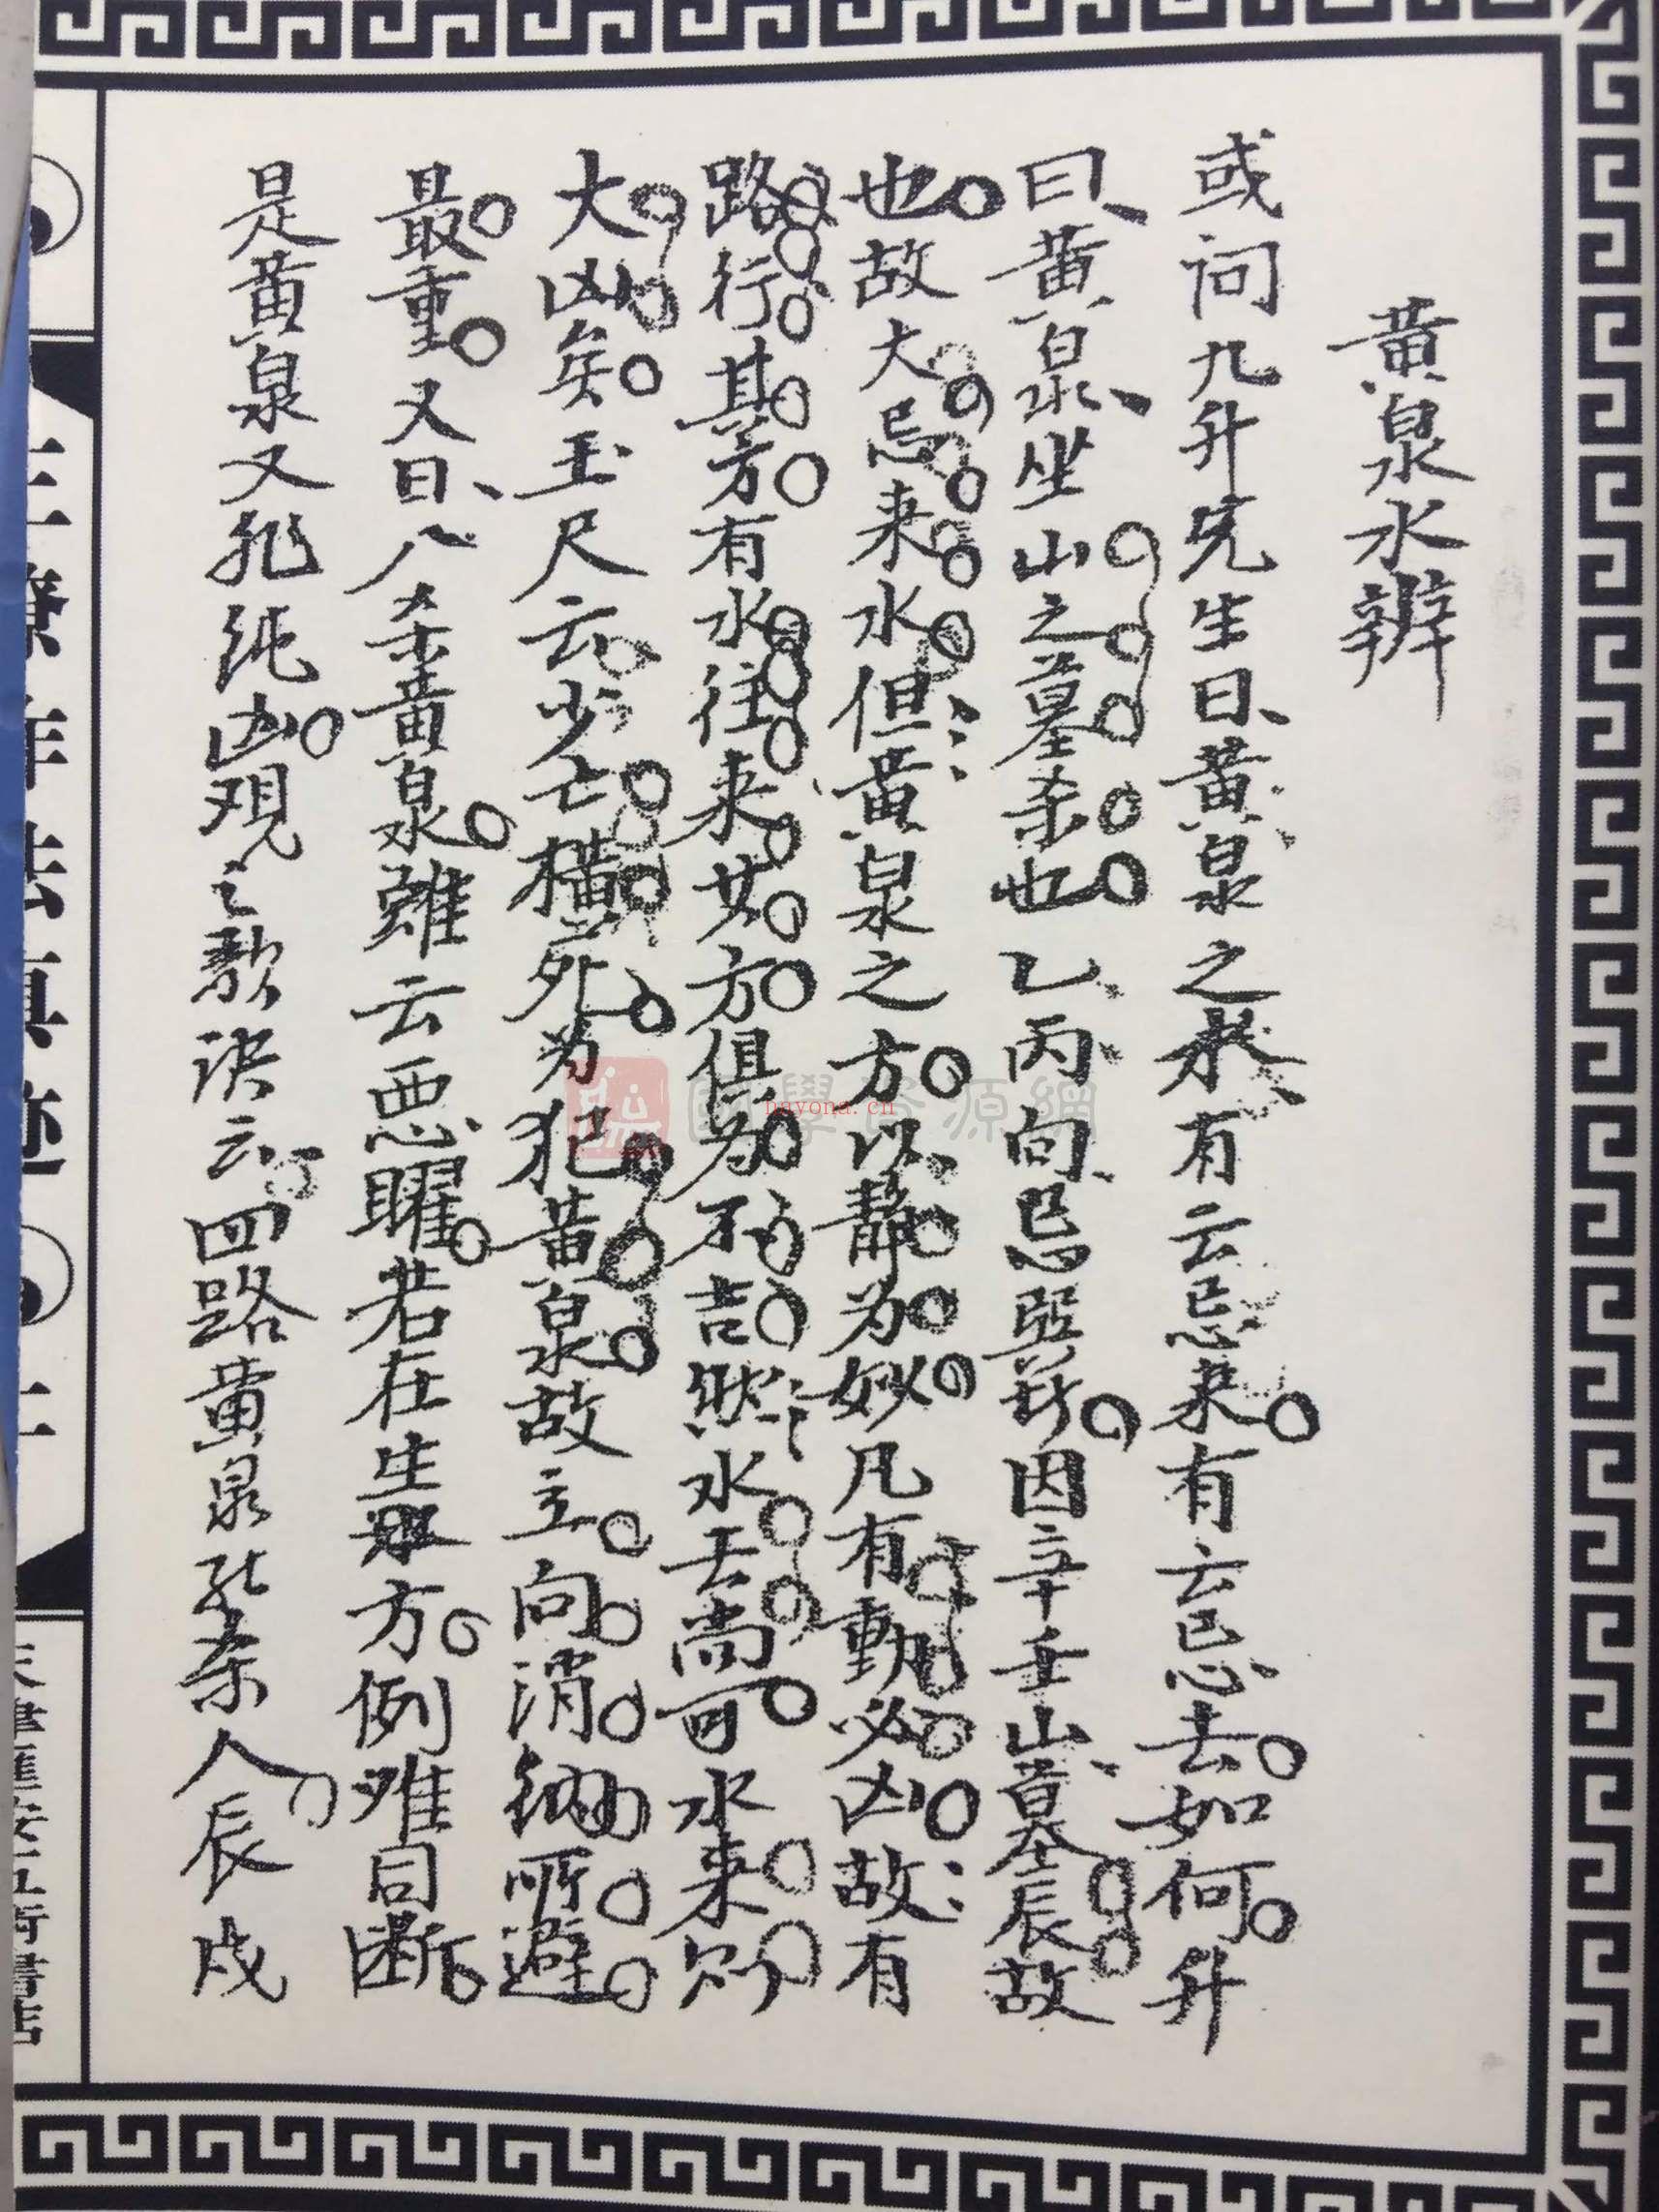 黄泉水辨
或问九升先生曰黄泉之水有云忌来有云忌去如何升
曰黄泉坐山之墓杀也乙丙向忌巽水因辛壬山墓辰故
也故大忌来水但黄泉之方以静为妙凡有動必凶故有
路行其方有水往来其方俱为不吉然水去尚可水来则
大凶矣玉尺云少亡横死为犯黄泉故立向消纳所避
最重又曰八杀黄泉虽云恶曜若在生方例难同断
是黄泉又非纯凶观之歌诀云四路黄泉能杀人辰戌
國學資源網
hnyona.cn